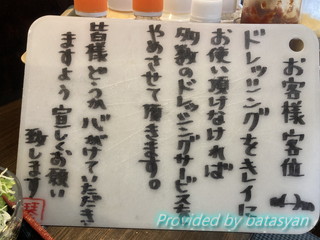 お客様各位
ドレッシングをキレイに
お使い頂けなければ
多数のドレッシングサービスを
やめさせて頂きます。
皆様どうか心がけていただき
ますよう宜しくお願い
致します
Provided by batasyan